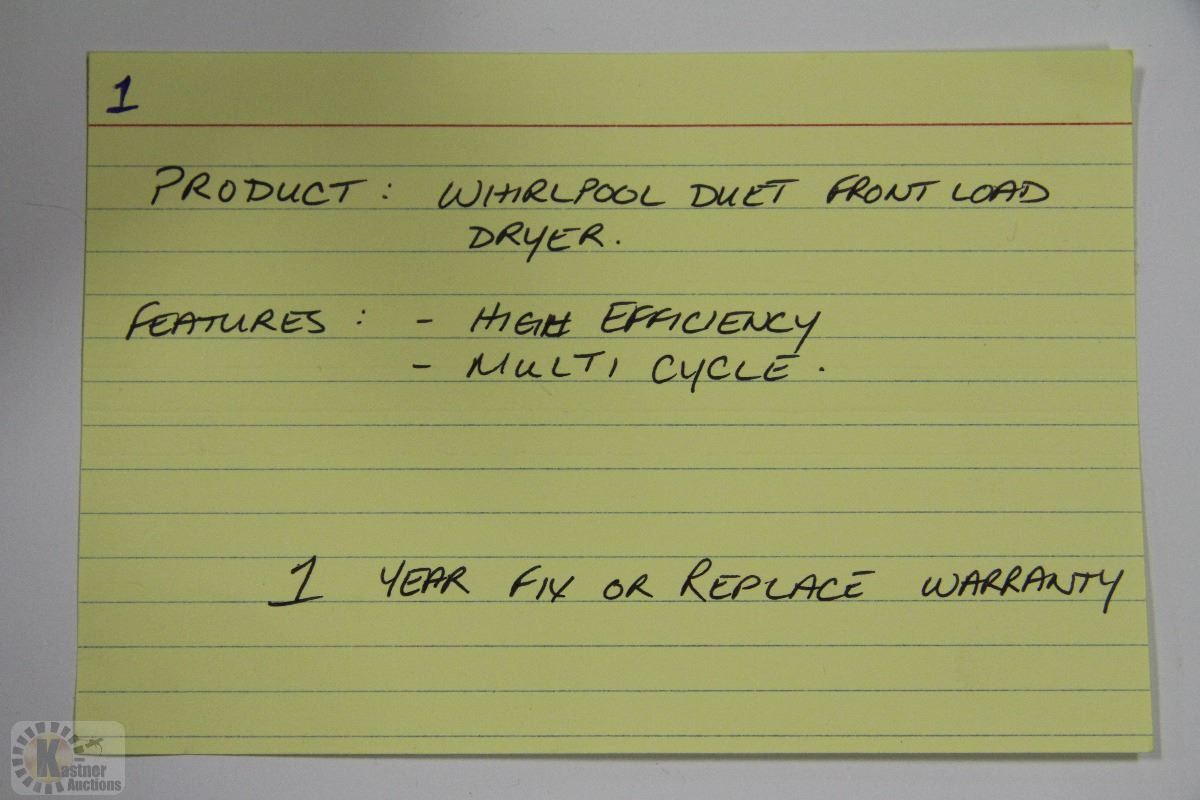 1
PRODUCT : WHIRLPOOL DUET FRONT LOAD
DRYER.
FEATURES : - HIGH EFFICIENCY
- MULTI CYCLE.
1 YEAR FIX OR REPLACE WARRANTY
Kastner
Auctions